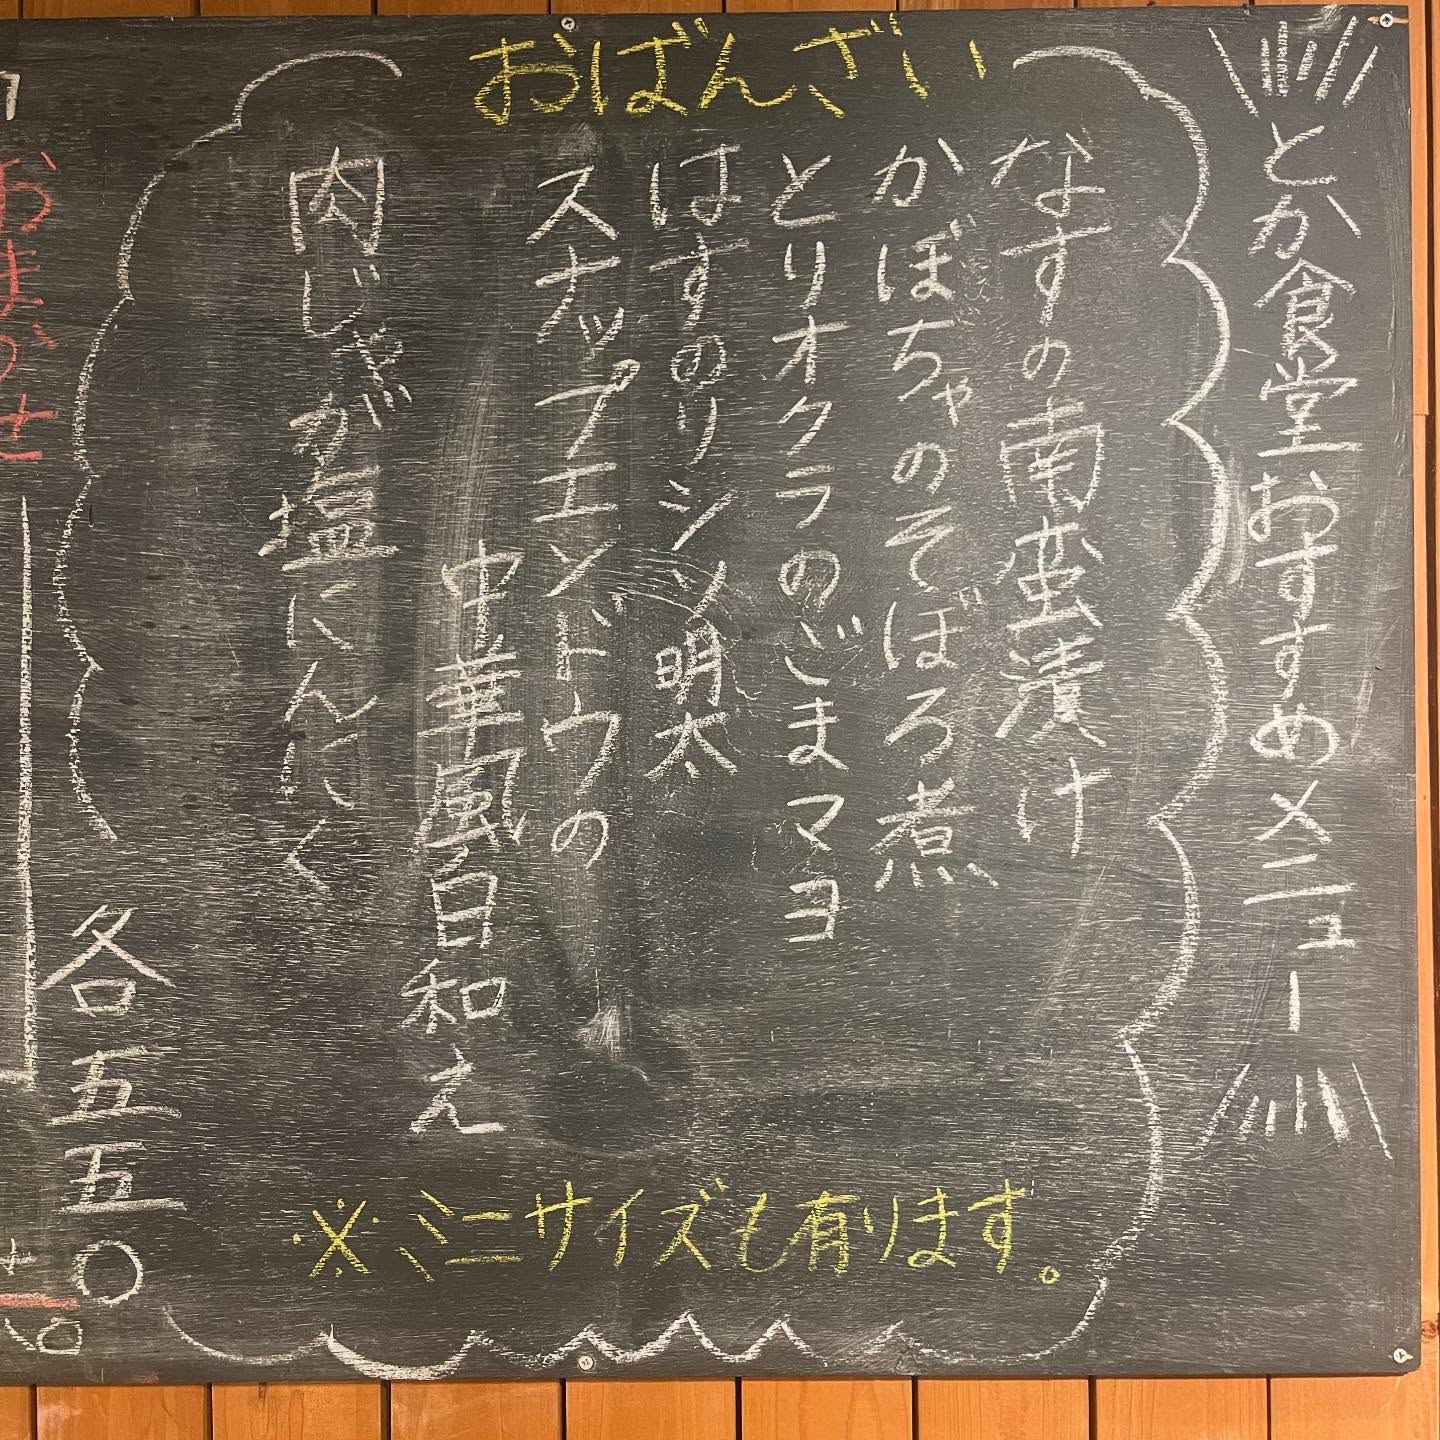 とか食堂おすすめメニュー
おばんざい
なすの南蛮漬け
かぼちゃのそぼろ煮
とりオクラのごまマヨ
はすのリシソ明太
スナップエンドウの
中華風白和え
肉じゃが塩にんにく
各五五〇
※ミニサイズも有ります。